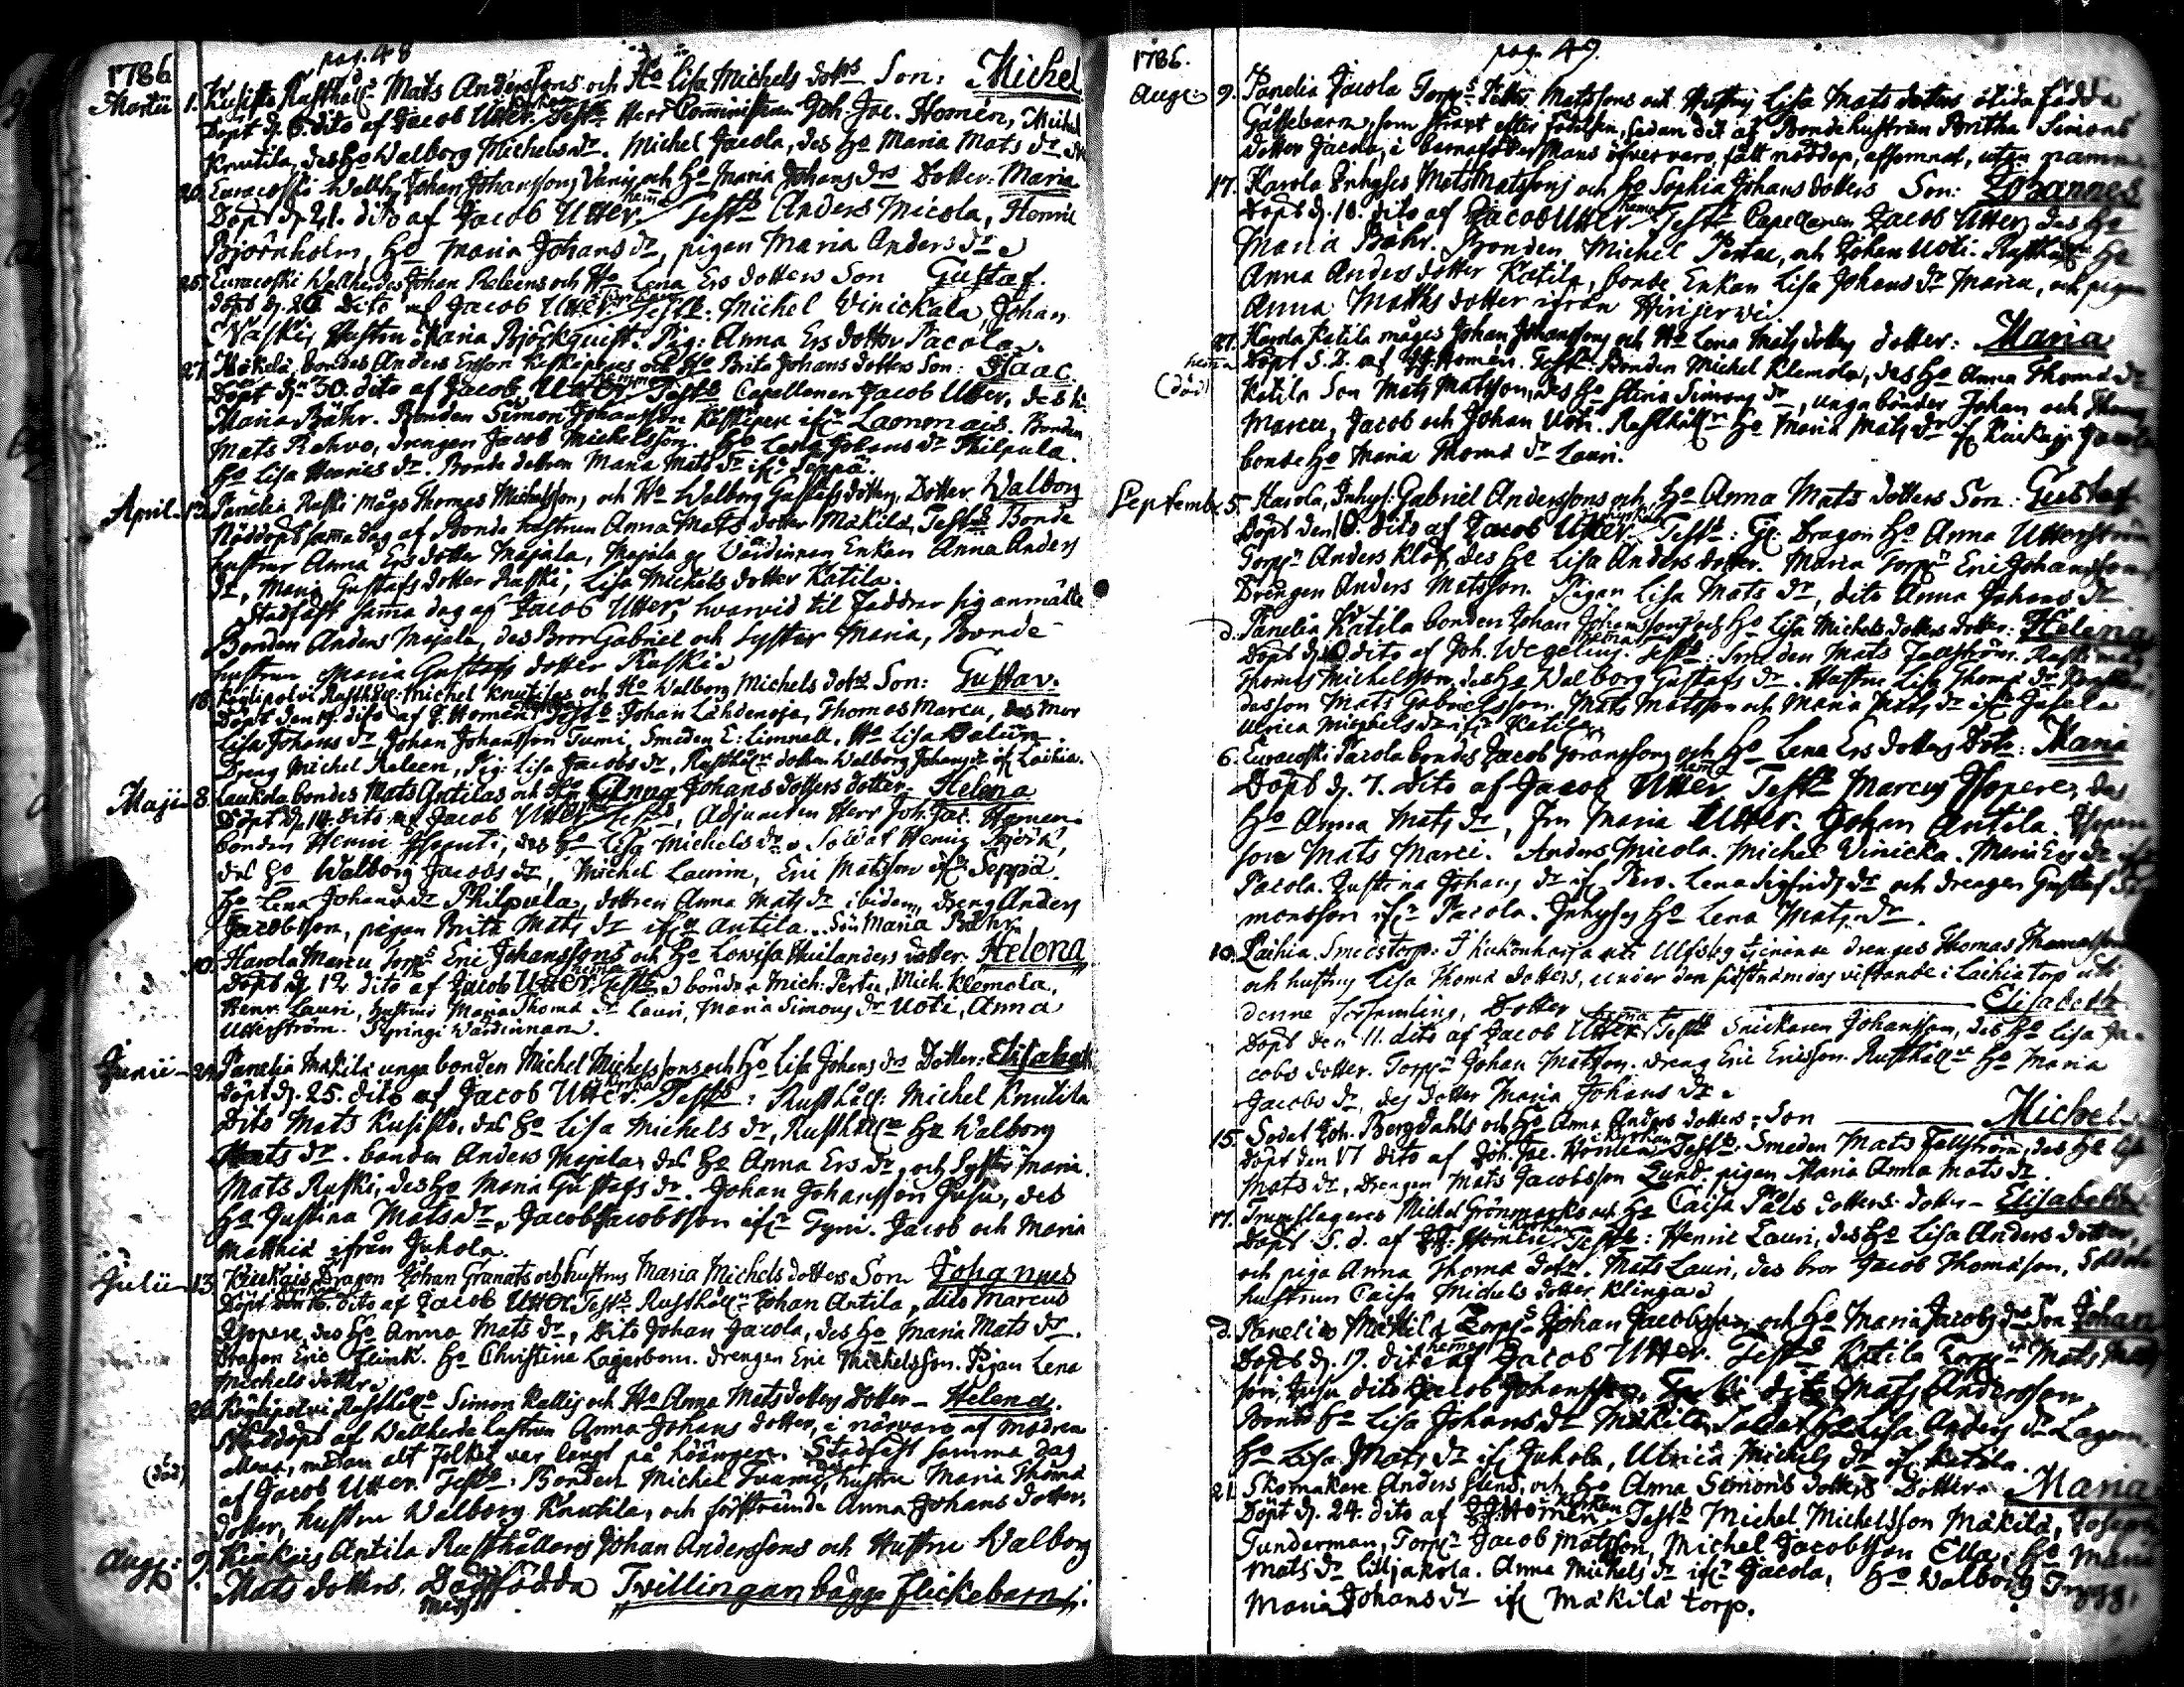 pag. 48
1786
Martii 1. Kusisto Rusthåll: Mats Anderssons och Ho Lisa Michels dotrs Son: Michel
Döpt d. 6. dito af Jacob Utter. Testes Herr Comministern Joh. Jac. Homén, Michel
Knutila, des Ho Walborg Michels dr. Michel Jacola, des Ho Maria Mats dr
20. Euracoski Johan Johanssons och Ho Maria Johans drs Dotter: Maria
Döpt d. 21. dito af Jacob Utter hema Testes Anders Micola, Henric
Björnholm, Ho Maria Johans dr, pigan Maria Anders dr
25. Euracoski Johan Releens och Ho Lena Ers dotters Son Gustaf.
döpt d. 26. dito af Jacob Utter. Testes: Michel Vinickala, Johan
Naski, Hustru Maria Björckquist. Pig: Anna Ers dotter Pacola.
27. Mäkelä bondes Anders Ersson och Ho Brita Johans dotters Son: Isaac.
Döpt dn 30. dito af Jacob Utter Testes Capellanen Jacob Utter, des h:
Maria Bähr. Bonden Simon Johansson ifr Bonden
Mats Rahvo, drengen Jacob Michelsson. Ho Lena Johans dr Philpula.
Ho Lisa Henrics dr. Bonde dottren Maria Mats dr ifr Seppä.
April. 12. Panelia Raski mågs Thomas Michelssons, och Ho Walborg Gustafs dotters, Dotter Walborg
Nöddöpt samma dag af Bonde hustrun Anna Mats dotter Mäkilä, Testes Bonde
hustrun Anna Ers dotter Majala, Majala gl Värdinnan Enkan Anna Anders
dr, Maria Gustafs dotter Raski, Lisa Michels dotter Katila.
Stadfäst samma dag af Jacob Utter, hvarvid til Faddrar sig anmälte
Bonden Anders Majala, des Bror Gabriel och Syster Maria, Bonde
hustrun Maria Gustafs dotter Raski
18. Köylipolvi Rusthåll: Michel Knutilas och Ho Walborg Michels dotrs Son: Gustav.
Döpt den 19. dito af J. Homén Testes Johan Lähdenoja, Thomas Marcu, des Mor
Lisa Johans dr Johan Johansson Tumi, Smeden E: Limnell, Ho Lisa
Dreng Michel Releen, Pig: Lisa Jacobs dr, Rusthållrs dotter Walborg Johans dr ifr Laihia.
Maji 8. Laukola bondes Mats Antilas och Ho Anna Johans dotters dotter Helena
Döpt d. 14. dito af Jacob Utter Testes, Adjuncten Herr Joh. Jac. Homen
bonden Henric des Ho Lisa Michels dr, Soldat Henric Björk,
des Ho Walborg Jacobs dr, Michel Laurin, Eric Matsson ifr Seppä.
Ho Lena Johans dr Philpula, dottren Anna Mats dr ibidem, Dreng Anders
Jacobsson, pigan Brita Mats dr ifr Antila. Maria Bähr
10. Harola Marcu Torps Eric Johanssons och Ho Lowisa Huilanders dotter: Helena
döpt d. 12 dito af Jacob Utter hema Testes bönder Mich: Pertu, Mich: Klemola,
Henr: Lauri, hustrur Maria Thomä dr Lauri, Maria Simons dr Uoti, Anna
Utterström. Syringi Värdinnan.
Junii 24. Panelia Mäkilä unga bonden Michel Michelssons och Ho Lisa Johans drs Dotter: Elisabeth
döpt d. 25. dito af Jacob Utter kyrkan Testes: Rusthåll: Michel Knutila
Dito Mats Kusisto, des Ho Lisa Michels dr, Rusthålls Ho Walborg
Mats dr. bonden Anders Majala, des Ho Anna Ers dr, och Syster Maria.
Mats Raski, des Ho Maria Gustafs dr. Johan Johansson Jusu, des
Ho Justina Mats dr, Jacob Jacobsson ifr Tyni. Jacob och Maria
Matthiä ifrån Juhola.
Julii 13. Kiukais Dragon Johan Granats och hustrus Maria Michels dotters Son Johannes
Döpt den 16. dito af Jacob Utter Testes Rusthålln Johan Antila, dito Marcus
Isopere, des Ho Anna Mats dr, dito Johan Jacola, des Ho Maria Mats dr.
Dragon Eric Flink. Ho Christina Lagerbom. drengen Eric Michelsson. Pigan Lena
Michels dotter
Köylipolvi Rusthålls Simon Kallis och Ho Anna Mats dotters Dotter – Helena.
Nöddöpt af Wallherde hustrun Anna Johans dotter, i närvaro af Modren
allena, medan alt folket var långt på höängen. Stadfäst samma dag
(död) af Jacob Utter. Testes: Bonden Michel Tuomi, des hustru Maria Thomä
dotter, hustru Walborg Knutila, och förstnämde Anna Johans dotter.
Aug: 9. Kiukais Antila Rusthållares Johan Anderssons och Hustru Walborg
Mats dotters, Dödfödda Twillingar, bägge flickebarn.
pag. 49.
1786.
Aug: 9. Panelia Jacola Torps Petter Matssons och Hustrus Lisa Mats dotters otida födda
Gåssebarn, som strax efter födslen, sedan det af Bondehustrun Britha Simons
dotter Jacola, i barnafödermans öfvervaro, fått nöddop, afsomnat, utan namn
17. Harola Inhyses Mats Matssons och Ho Sophia Johans dotters Son: Johannes
Döpt d. 18. dito af Jacob Utter hema Testes Capellanen Jacob Utter, des Ho
Maria Bähr. Bonden Michel Pertu, och Johan Uoti. Rusthålls Ho
Anna Anders dotter Katila, bonde Enkan Lisa Johans dr Marcu, och pigan
Anna Matths dotter ifrån Hinjerwi.
27. Harola Katila mågs Johan Johanssons och Ho Lena Mats dotters dotter: Maria
hema Döpt S. D. af J.J. Homén. Testes: Bonden Michel Klemola, des Ho Anna Thomä dr
(död) Katila Son Mats Matsson, des Ho Stina Simons dr, unga bönder Johan och Thomas
Marcu, Jacob och Johan Uoti. Rusthålls Ho Maria Mats dr ifr Kiukais Jacola
bonde Ho Maria Thomä dr Lauri.
Septembr 5. Harola, Inhys: Gabriel Anderssons och Ho Anna Mats dotters Son: Gustaf
Döpt den 6. dito af Jacob Utter Testes: Gl. Dragon Ho Anna Utterström
Torpn Anders Klöf, des Ho Lisa Anders dotter. Marcu Torpn Eric Johansson
Drengen Anders Matsson. Pigan Lisa Mats dr, dito Anna Johans dr
d. Panelia Katila bonden Johan Johanssons och Ho Lisa Michels dotters dotter: Helena
Döpt d. 6 dito af Joh. Wegelius. hema Testes: Smeden Mats Fallström. Raski måg
Thomas Michelsson, des Ho Walborg Gustafs dr. Hustru Lisa Thomä dr
desson Mats Gabrielsson. Mats Matsson och Maria Mats dr ifr Jusela
Ulrica Michels dr ifr Katila
6. Euracoski Pacola bondes Jacob Göranssons och Ho Lena Ers dotters Dotr: Maria
Döpt d. 7. dito af Jacob Utter. hema Testes Marcus Isopere, des
Ho Anna Mats dr, Fru Maria Utter. Johan Antila. Isopere
son Mats Marci. Anders Micola. Michel Vinicka. Maria Ers dr ifr
Pacola. Justina Johans dr ifr Pero. Lena Sigfrids dr och drengen Gustaf Si-
monsson ifr Pacola. Inhyses Ho Lena Mats dr.
10. Laihia Smeds torp: I Kiukonharja uti Ulfsby tjenande drenges Thomas Thomasson
och hustrus Lisa Thomä dotters, under den sistnämdas vistande i Laihia torp uti
denne församling, Dotter Elisabeth
Döpt den 11. dito af Jacob Utter hema Testes Snickaren Johansson, des Ho Lisa Ja-
cobs dotter. Torpn Johan Matsson. dreng Eric Ericsson. Rusthålls Ho Maria
Jacobs dr, des dotter Maria Johans dr
15. Sodat Joh. Bergdahls och Ho Anna Anders dotters Son Michel
Döpt den 17 dito af Joh. Jac. Homén i kyrkan Testes: Smeden Mats Fallström, des Ho Lisa
Mats dr, drengen Mats Jacobsson Lund. pigan Maria Anna Mats dr.
17. Trumslagares Michel Grönmarks och Ho Caisa Påls dotters dotter – Elisabeth
Döpt S. d. af J.J. Homén Kyrkan Testes: Henric Lauri, des Ho Lisa Anders dotter,
och piga Anna Thomä dotr. Mats Lauri, des bror Jacob Thomasson, Soldate
hustrun Caisa Michels dotter Klinga
d. Panelia Mäkilä Torps Johan Jacobsson och Ho Maria Jacobs drs Son Johan
Döpt d. 19. dito af Jacob Utter. hema Testes Katila Torpn Mats Mats
son, Jusu dito Jacob Johansson, dito Mats Andersson,
Bonde Ho Lisa Johans dr Mäkilä, Soldat Ho Lisa Anders dr Lagern.
Ho Lisa Mats dr ifr Juhola, Ulrica Michels dr ifr Katila.
21. Skomakare Anders Glens, och Ho Anna Simons dotters Dotter Maria
Döpt d. 24. dito af J.J. Homén Kyrkan Testes Michel Michelsson Mäkilä, Joseph
Tunderman, Torpn Jacob Matsson, Michel Jacobsson Ella, Ho Maria
Mats dr Liljakola. Anna Michels dr ifr Jacola, Ho Walborg Trygg,
Maria Johans dr ifr Mäkilä torp.